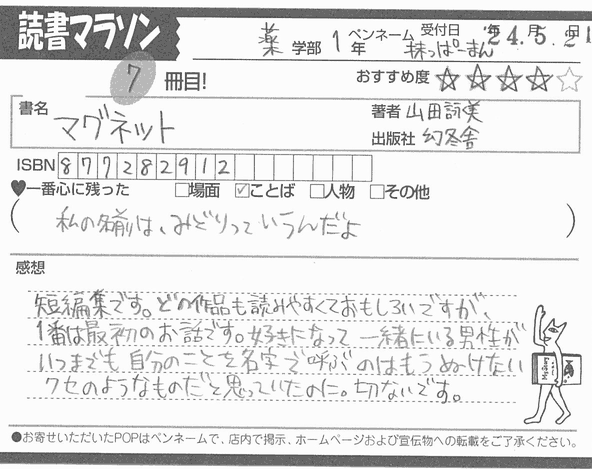 読書マラソン
薬 学部 1 年 ペンネーム 抹っぱーまん 受付日 '24.5.21
7 冊目! おすすめ度 ★★★★☆
書名 マグネット
著者 山田詠美
出版社 幻冬舎
ISBN 877282912
♥一番心に残った □場面 ☑ことば □人物 □その他
(私の名前は、みどりっていうんだよ)
感想
短編集です。どの作品も読みやすくておもしろいですが、
1番は最初のお話です。好きになって一緒にいる男性が
いつまでも自分のことを名字で呼ぶのはもうぬけない
クセのようなものだと思っていたのに。切ないです。
●お寄せいただいたPOPはペンネームで、店内で掲示、ホームページおよび宣伝物への転載をご了承ください。